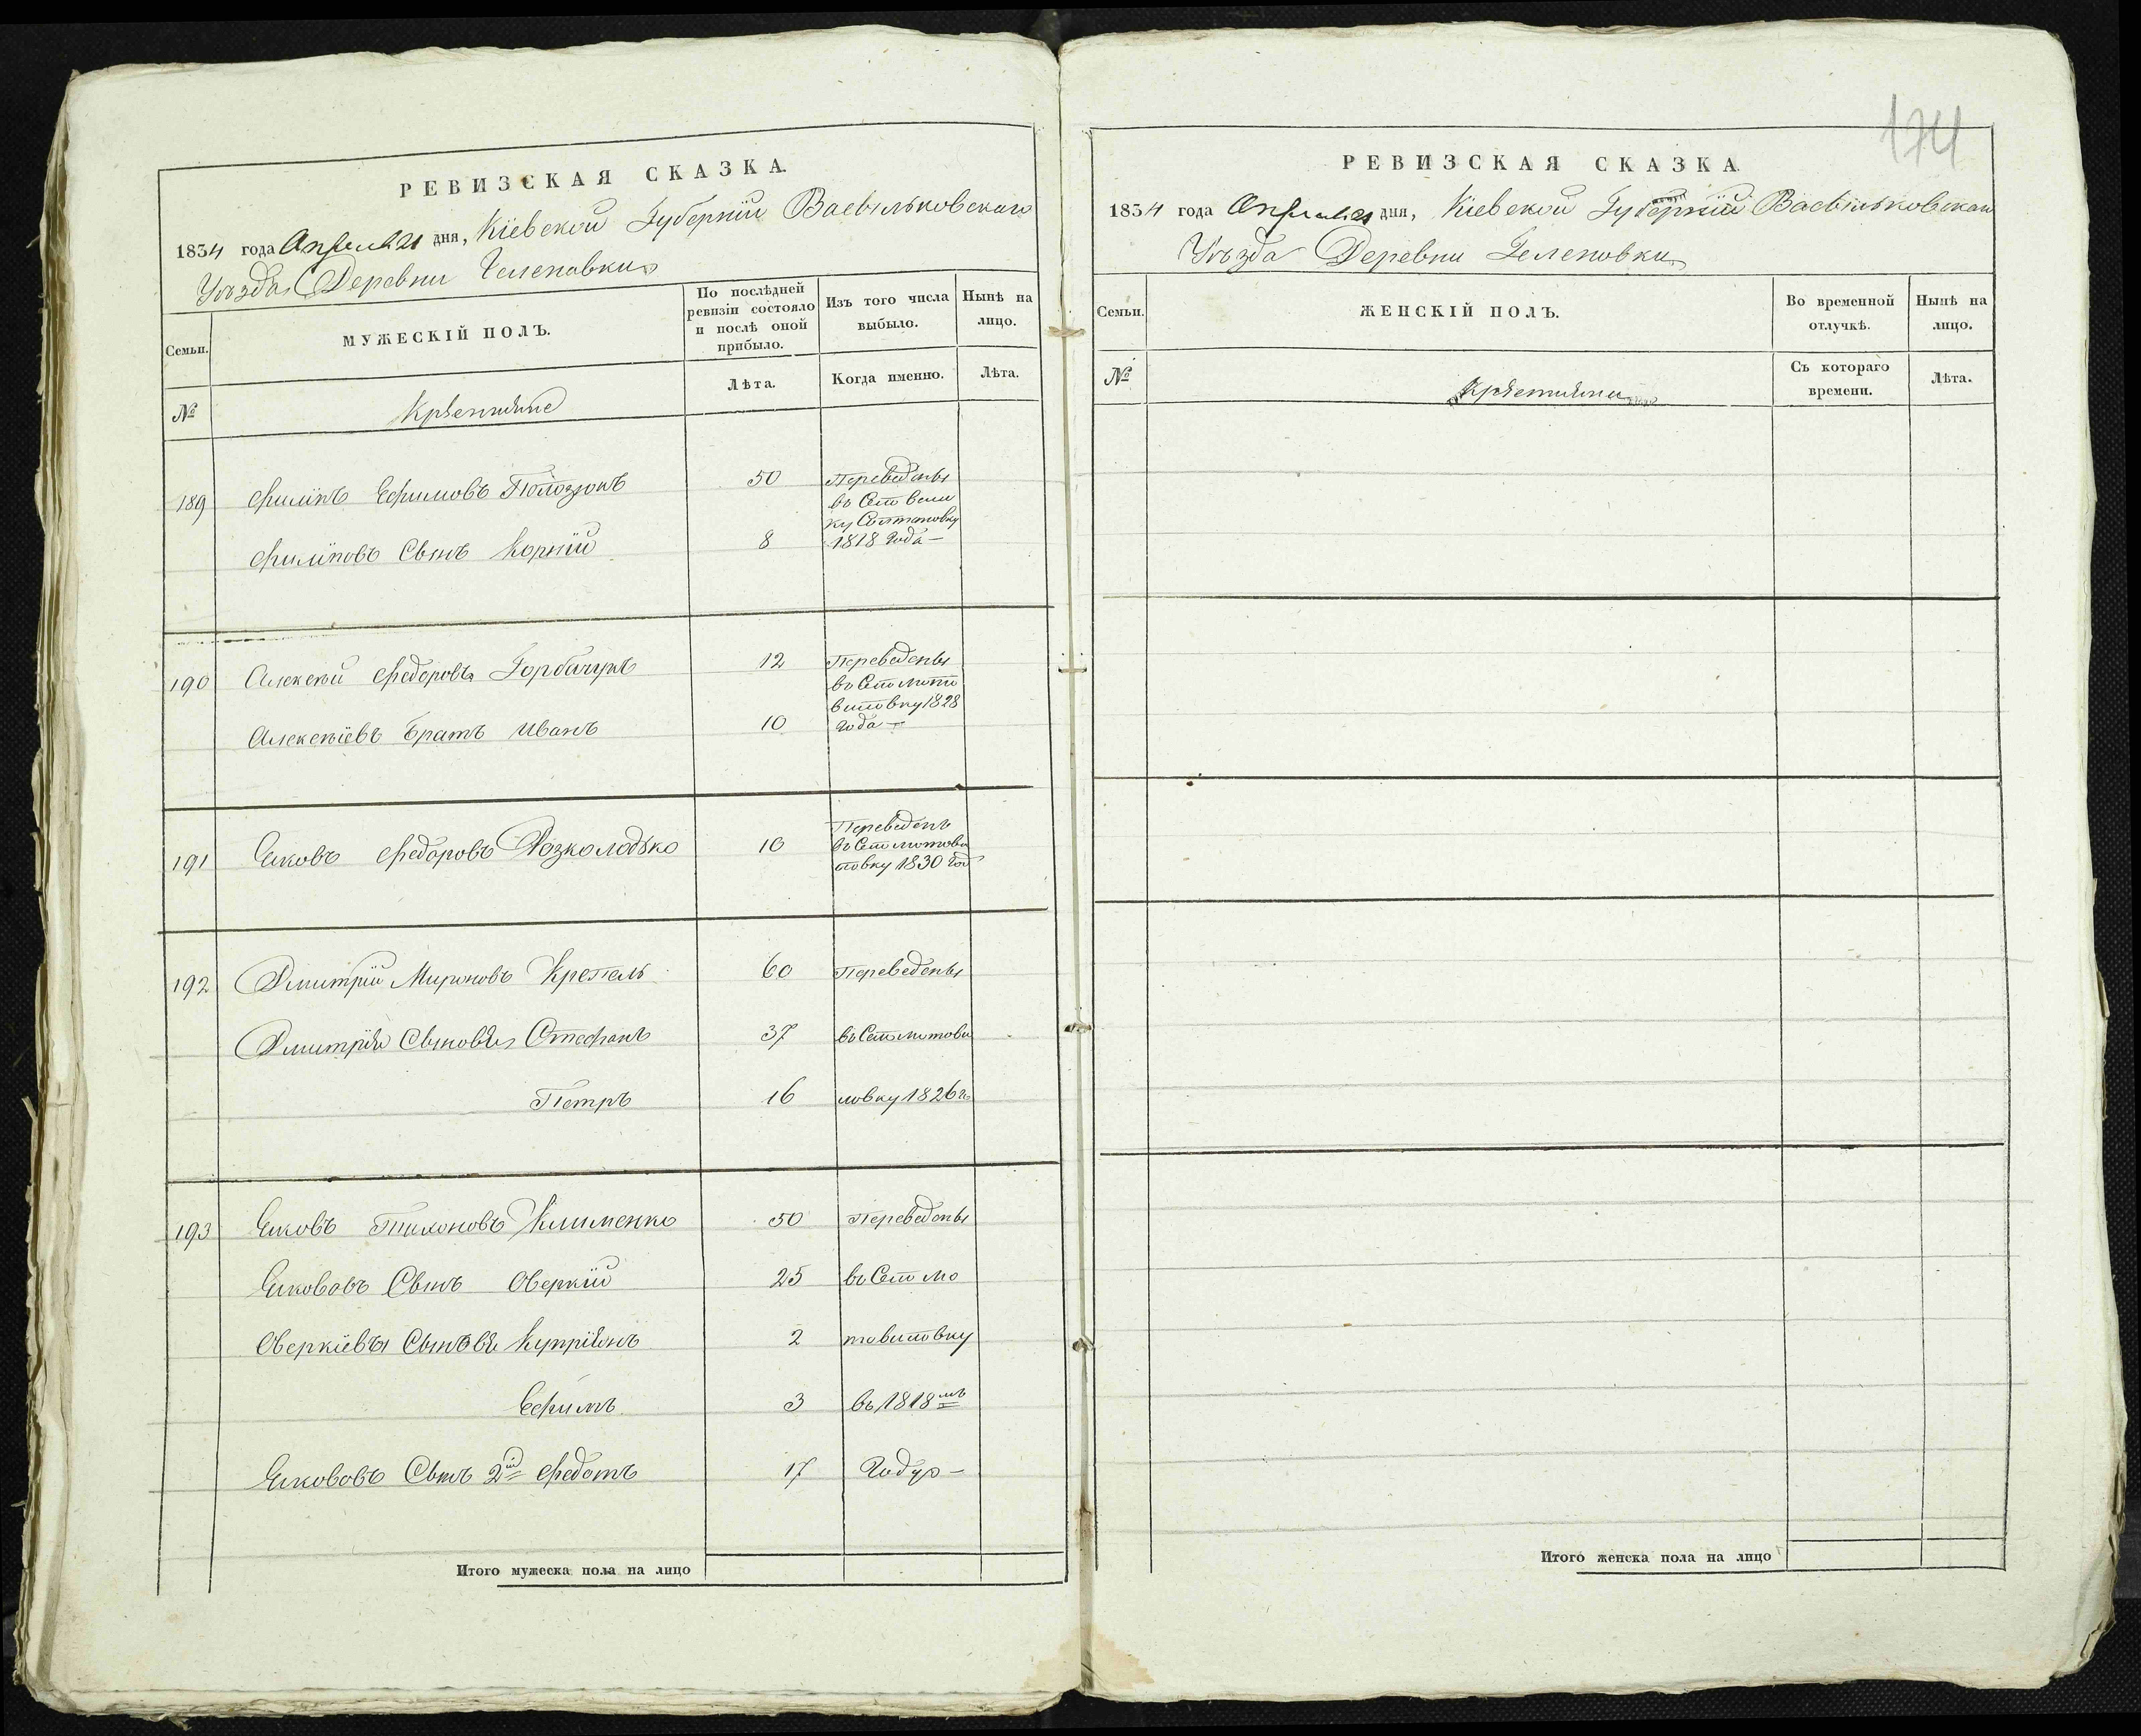 РЕВИЗСКАЯ СКАЗКА.
1834 года Апреля 21 дня, Кіевской Губерніи Васильковскаго
Уѣзда Деревни Гелеповки
Семьи. МУЖЕСКІЙ ПОЛЪ. По послѣдней ревизіи состояло и послѣ оной прибыло. Изъ того числа выбыло. Нынѣ на лицо.
№ Крѣстьяне Лѣта. Когда именно. Лѣта.
189 Филипъ Ефимовъ 50 Переведены
въ Село
1818 Года —
Филиповъ Сынъ Корнїй 8
190 Алексѣй Федоровъ Горбачукъ 12 Переведены
въ Село Мото
виловку 1828
Года —
Алексѣевъ Братъ Иванъ 10
191 Яковъ Федоровъ Розколодько 10 Переведенъ
въ Село Мотови
ловку 1830 Год
192 Дмитрїй Мироновъ Крепель 60 Переведены
Дмитрїя Сыновья Стефанъ 37 въ Село Мотови
Петръ 16 ловку 1826 г
193 Яковъ Тихоновъ Клименко 50 Переведены
Яковавъ Сынъ Оверкїй 25 въ Село Мо
Оверкіевы Сыновья Купрїянъ 2 товиловку
Ефимъ 3 въ 1818мъ
Якововъ Сынъ 2й Федотъ 17 Году —
Итого мужеска пола на лицо
174
РЕВИЗСКАЯ СКАЗКА.
1834 года Апреля 21 дня, Кіевской Губерніи Васильковскаго
Уѣзда Деревни Гелеповки
Семьи. ЖЕНСКІЙ ПОЛЪ. Во временной отлучкѣ. Нынѣ на лицо.
№ Крѣстьяне Съ котораго времени. Лѣта.
Итого женска пола на лицо